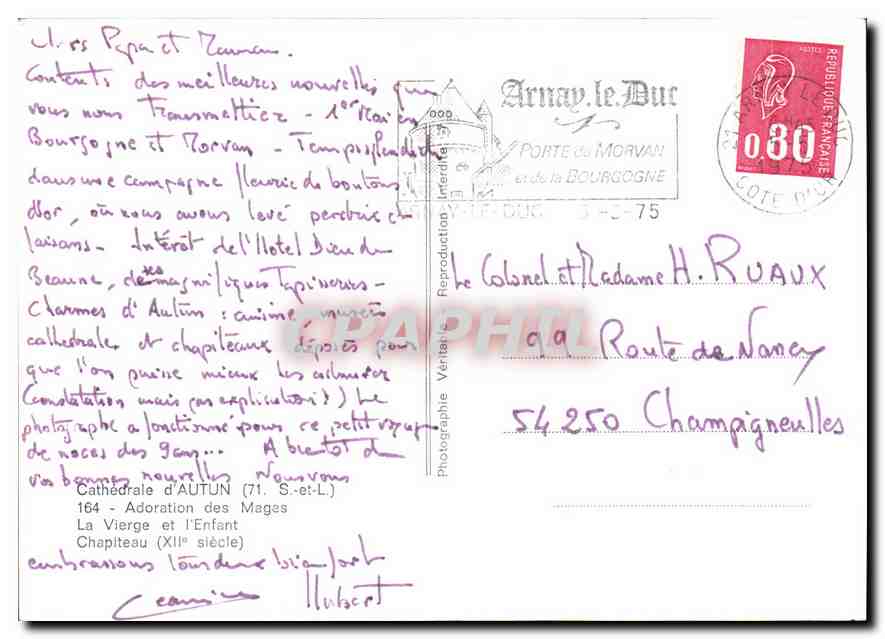 Chers Papa et Maman.
Contents des meilleures nouvelles que
vous nous transmettiez - 1er Mai en
Bourgogne et Morvan - Temps splendide
dans une campagne fleurie de boutons
d'or, où nous avons levé perdrix et
faisans - Intérêt de l'Hotel Dieu de
Beaune, de ses magnifiques Tapisseries -
Charmes d'Autun : cuisine, musées
cathédrale et chapiteaux déposés pour
que l'on puisse mieux les admirer
(constatation mais pas explication !) Le
photographe a fonctionné pour ce petit voyage
de noces des 9 ans... A bientôt de
vos bonnes nouvelles Nous vous
Cathédrale d'AUTUN (71. S.-et-L.)
164 - Adoration des Mages
La Vierge et l'Enfant
Chapiteau (XIIe siècle)
embrassons tous deux bien fort
Hubert
Photographie Véritable Reproduction Interdite
Arnay.le.Duc
PORTE du MORVAN
et de la BOURGOGNE
ARNAY-LE-DUC
75
POSTES
REPUBLIQUE FRANÇAISE
0.80
21 ARNAY LE DUC
1975
COTE D'OR
Le Colonel et Madame H. RUAUX
99 Route de Nancy
54250 Champigneulles
CPAPHIL